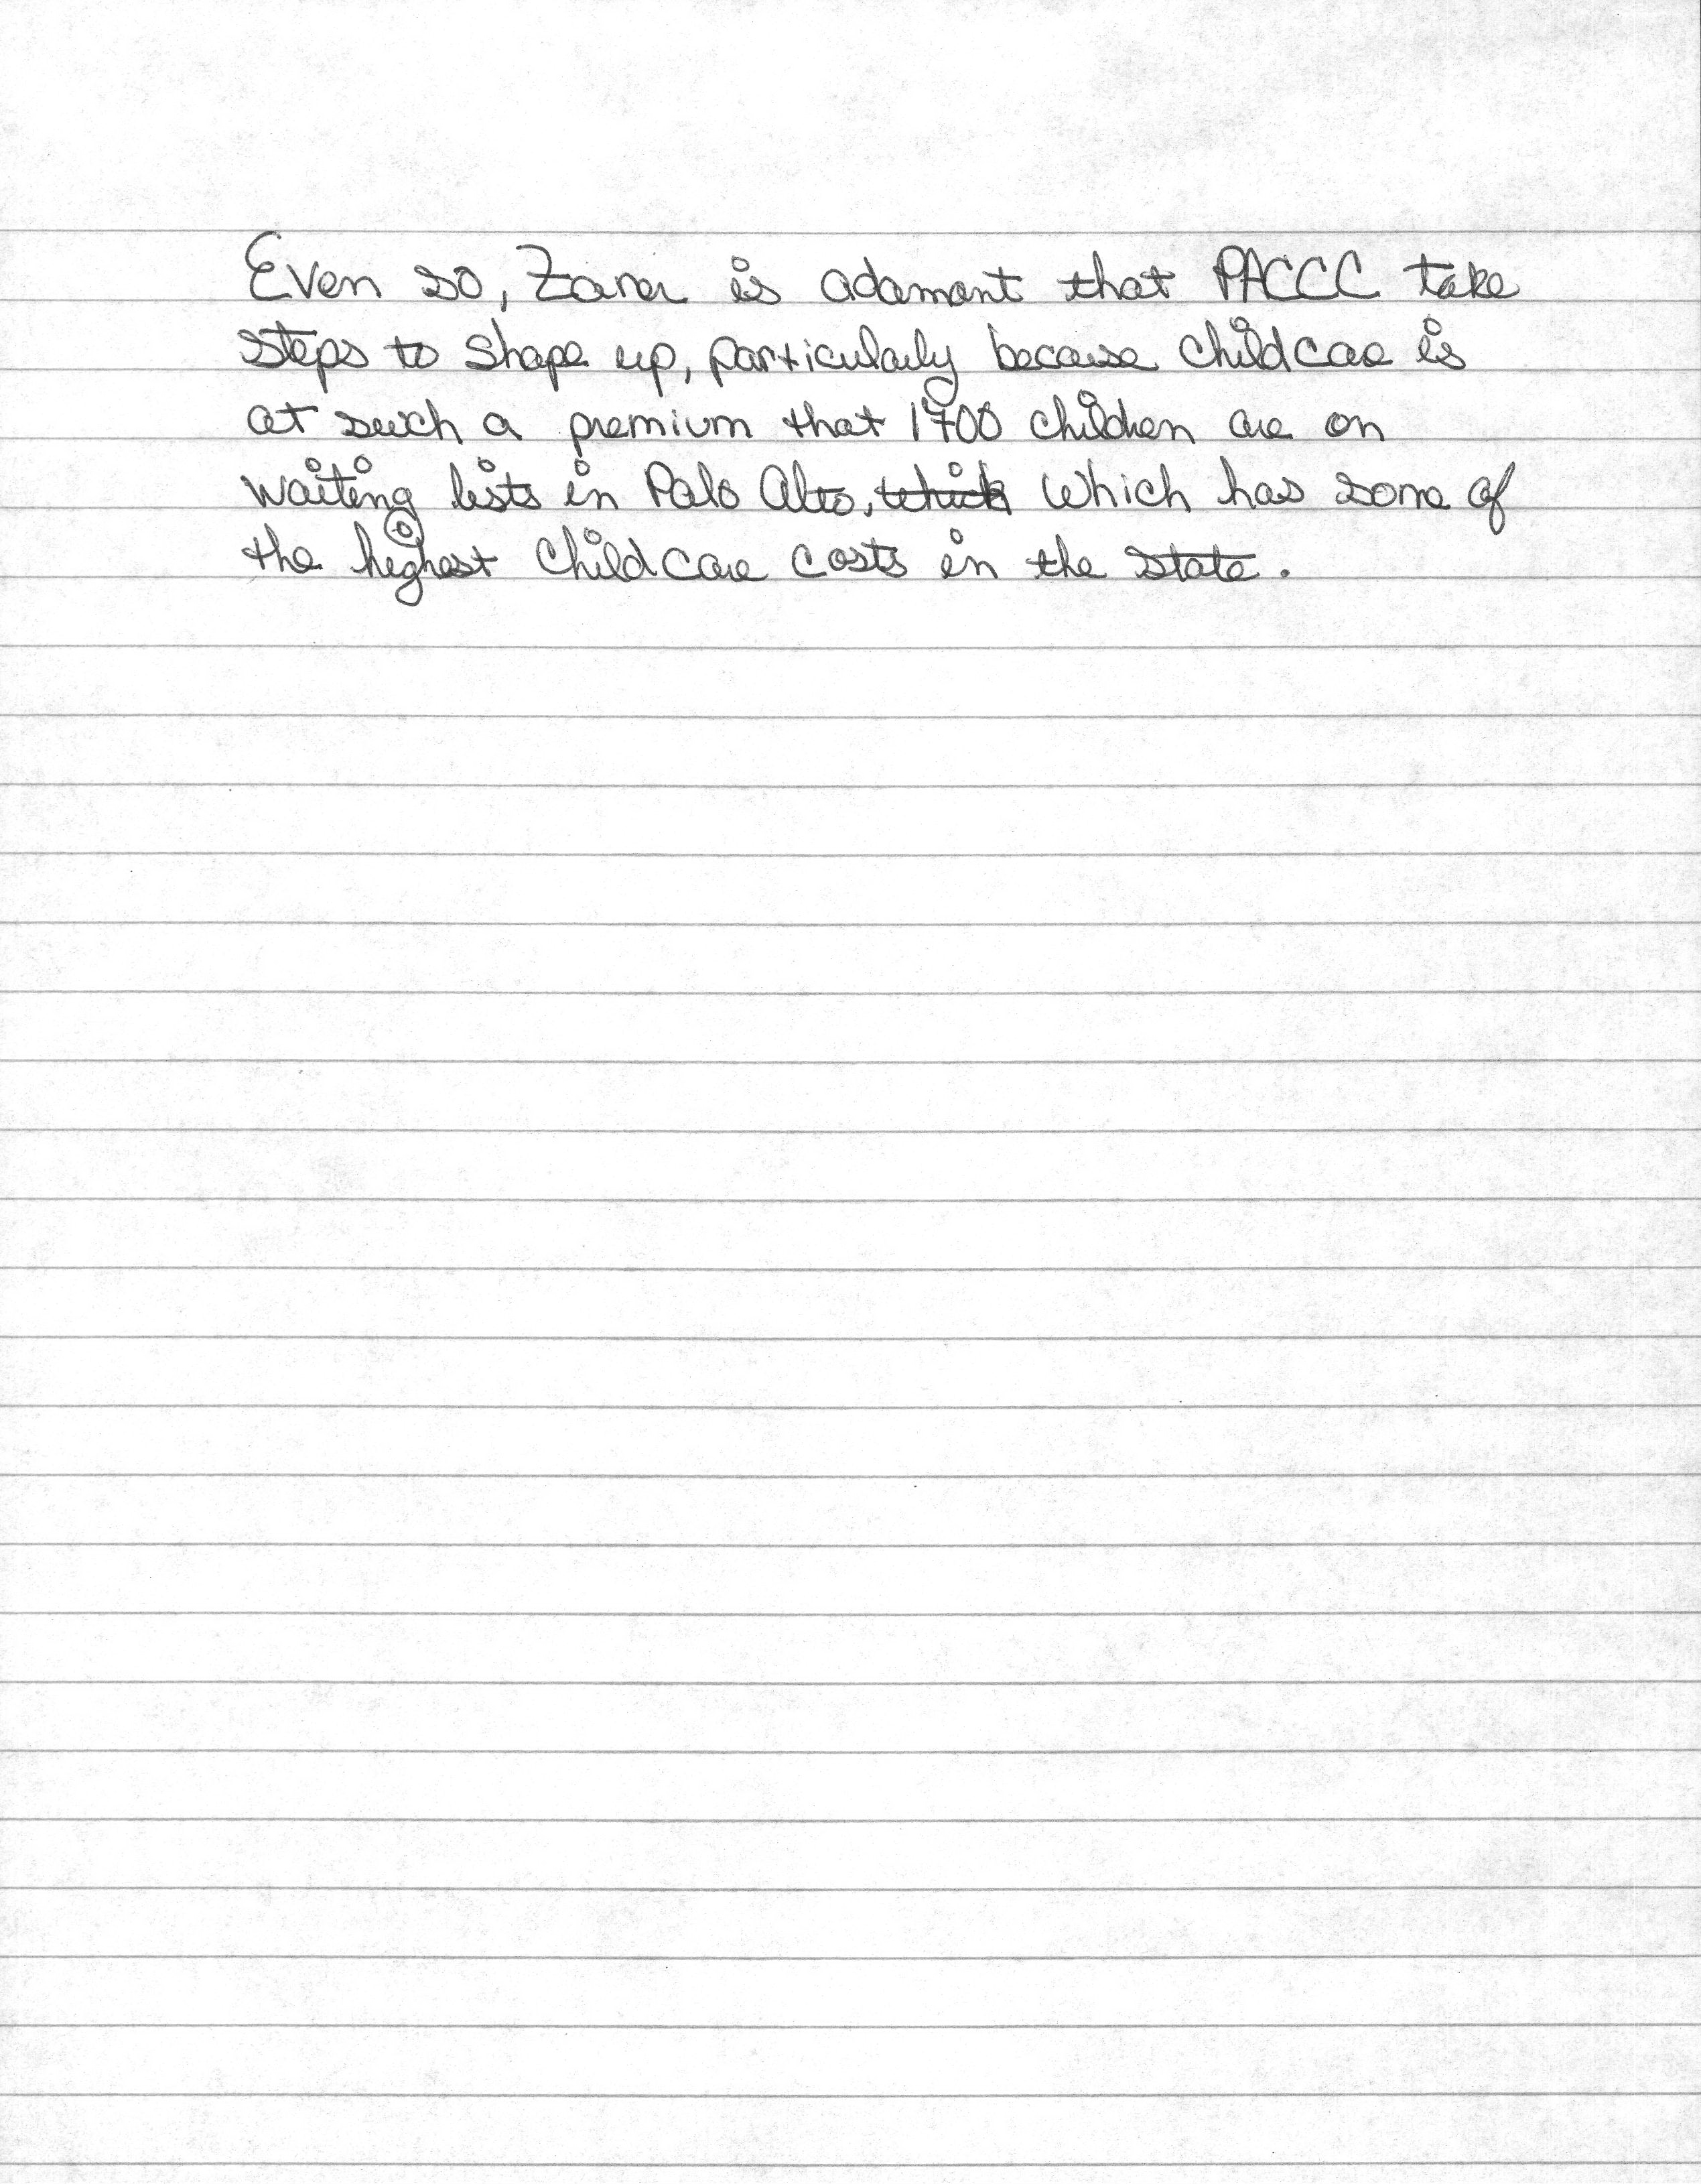 Even so, Zaner is adamant that PACCC take
steps to shape up, particularly because childcare is
at such a premium that 1700 children are on
waiting lists in Palo Alto, which which has some of
the highest childcare costs in the state.